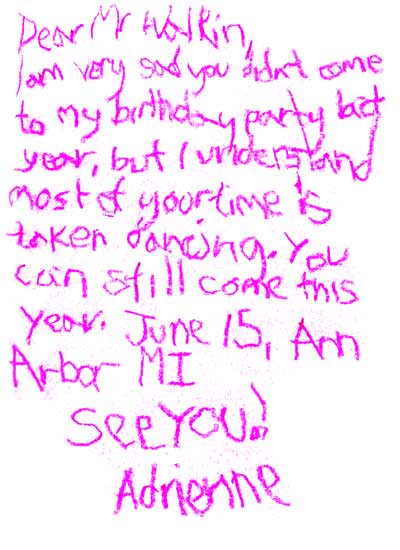 Dear Mr Walkin,
I am very sad you didnt come
to my birthday party last
year, but I understand
most of your time is
taken dancing. You
can still come this
year. June 15, Ann
Arbor MI
See You!
Adrienne